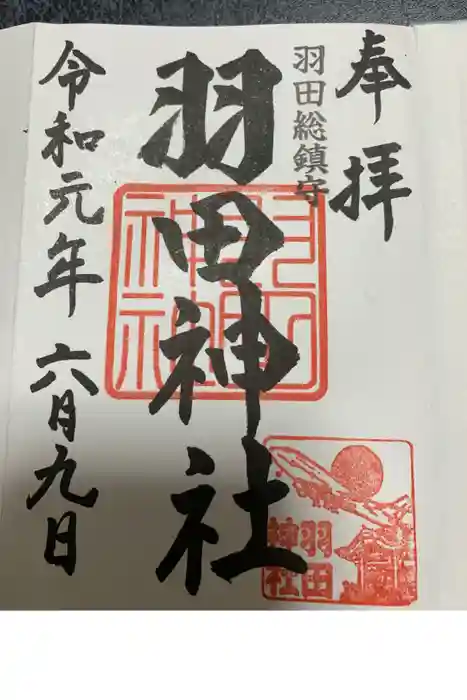 奉拝
羽田総鎮守
羽田神社
令和元年六月九日
羽田
神社
羽田
神社